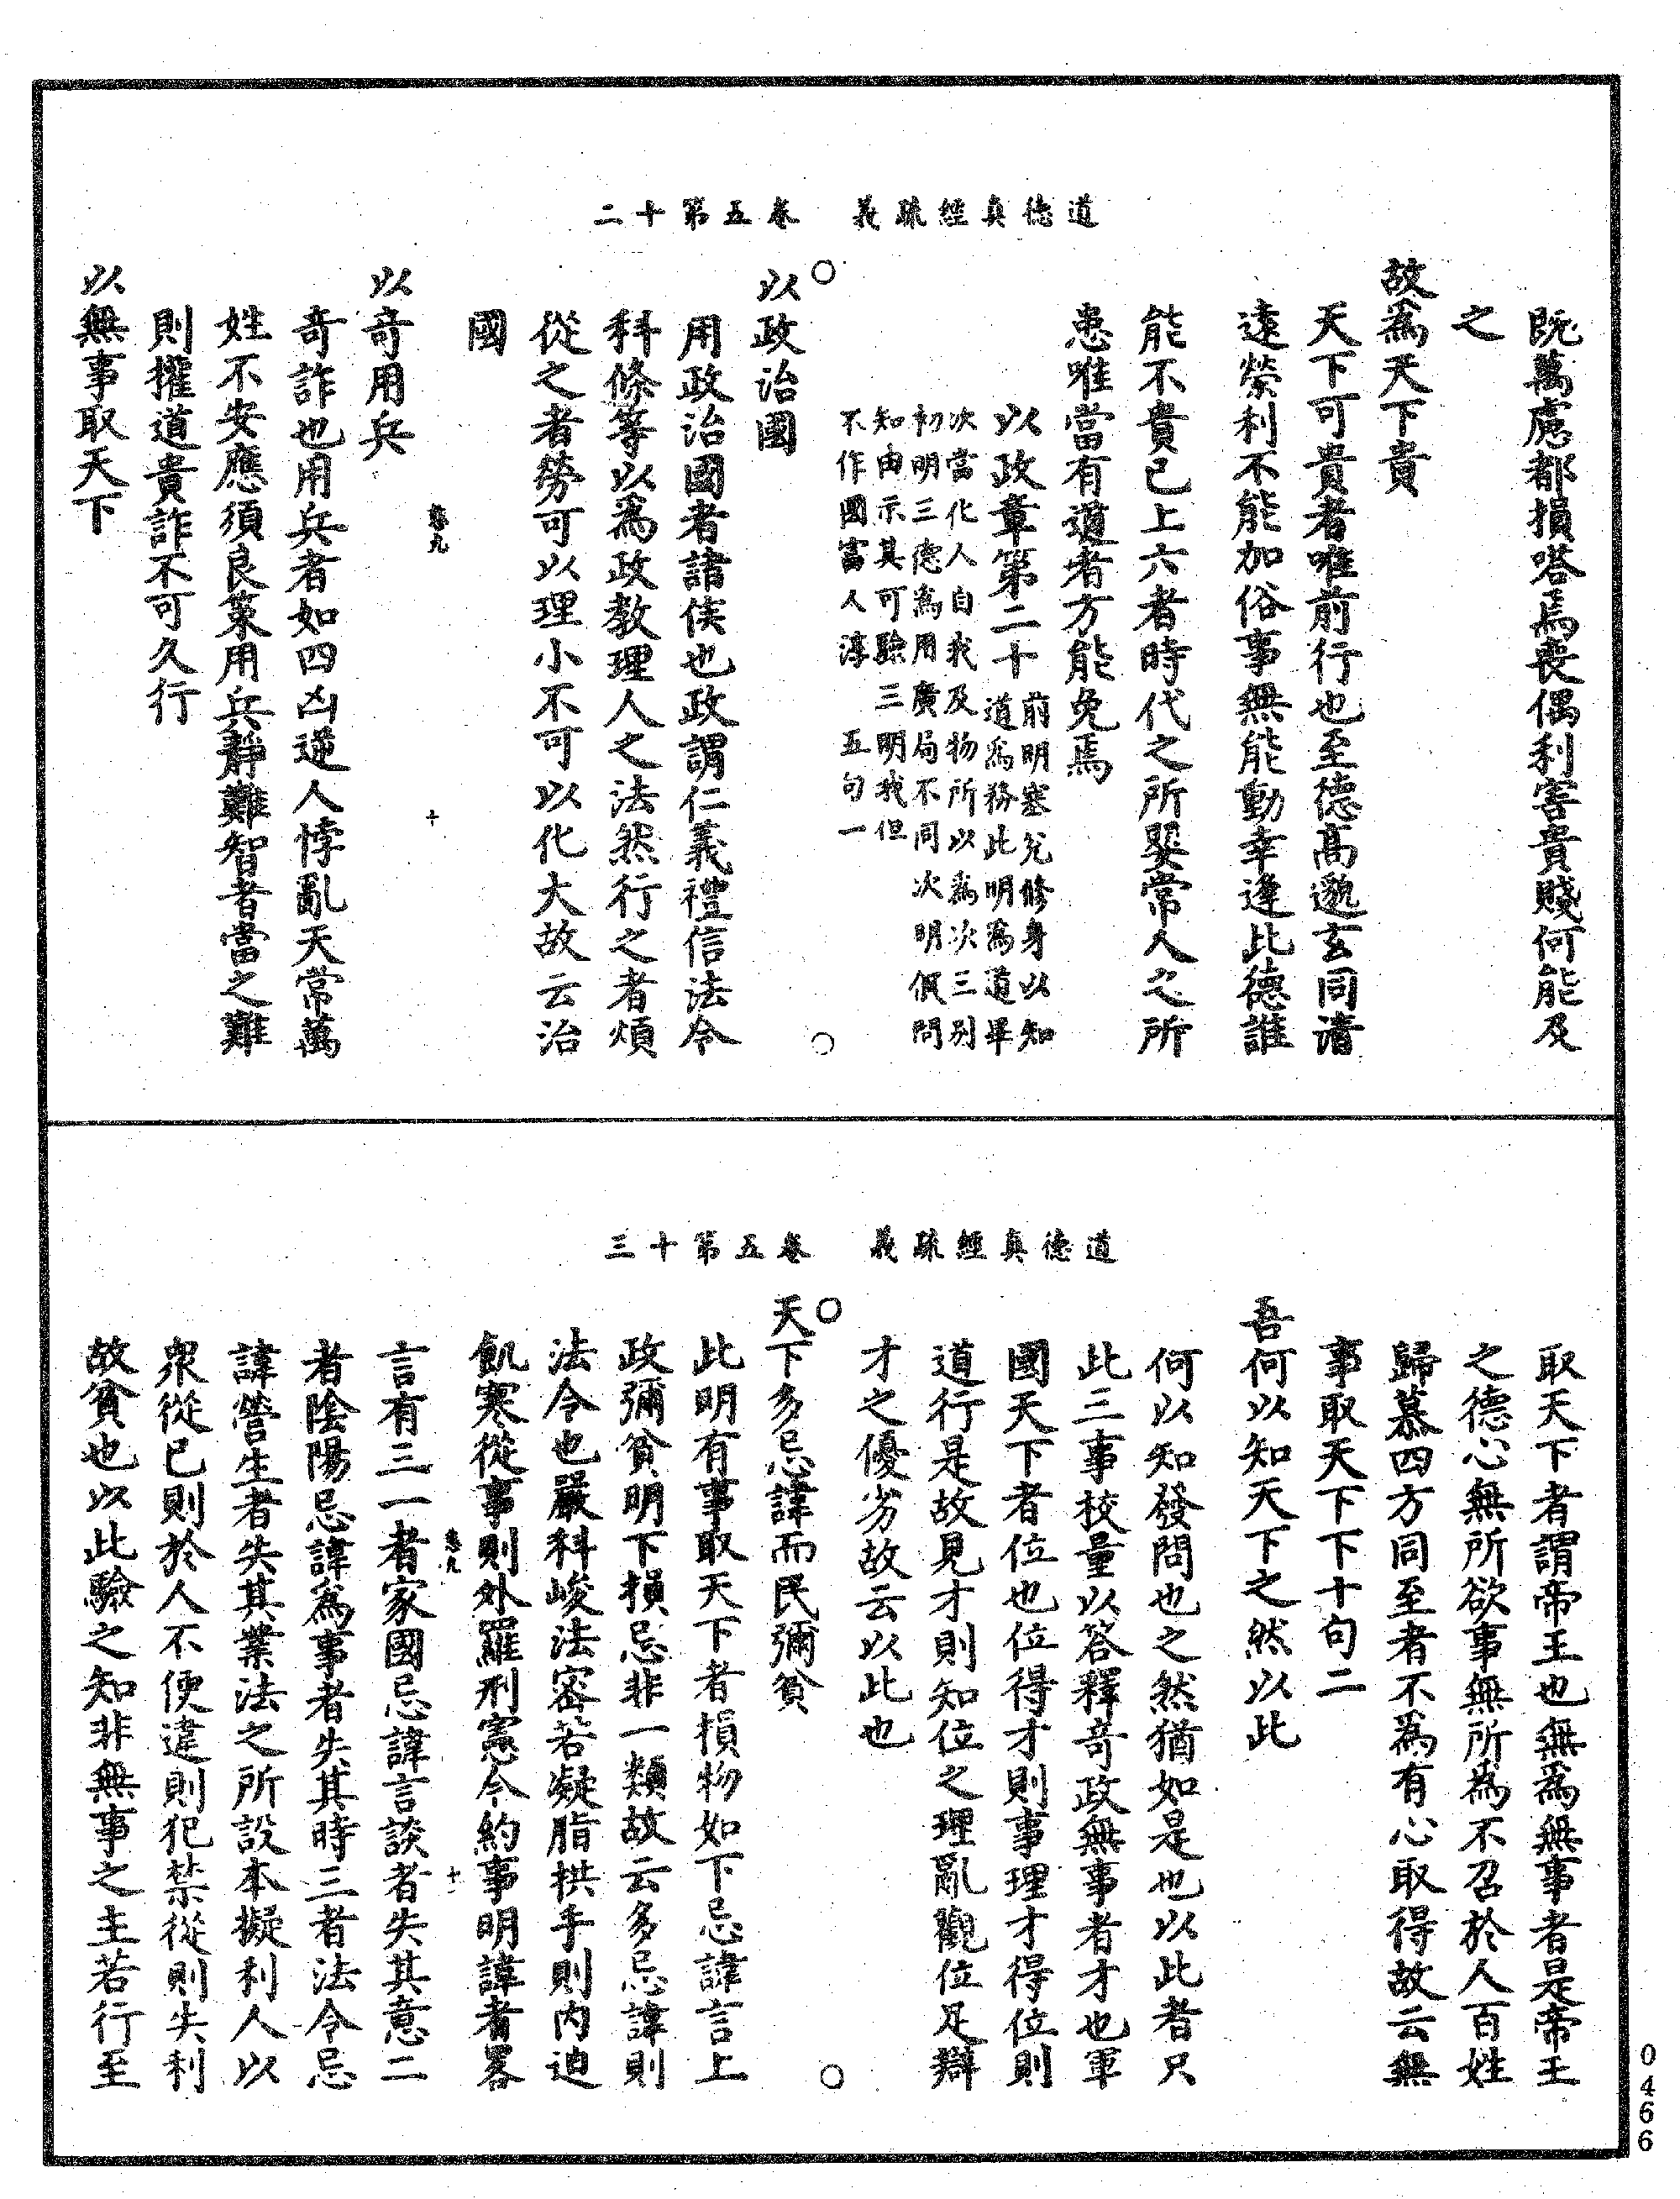 道德真經疏義　卷五第十二
既萬慮都損嗒焉喪偶利害貴賤何能及
之
故為天下貴
天下可貴者唯前行也至德高邈玄同渚
遠榮利不能加俗事無能動幸逢此德誰
能不貴已上六者時代之所嬰常人之所
患唯當有道者方能免焉
以政章第二十
前明塞兌修身以知
道為務此明為道畢
次當化人自我及物所以為次三別
初明三德為用廣局不同次明假問
知由示其可驗三明我但
不作國富人淳　五句一
以政治國
用政治國者諸侯也政謂仁義禮信法令
科條等以為政教理人之法然行之者煩
從之者勞可以理小不可以化大故云治
國
卷九　十
以奇用兵
奇詐也用兵者如四凶逆人悖亂天常萬
姓不安應須良策用兵靜難智者當之難
則權道貴詐不可久行
以無事取天下
道德真經疏義　卷五第十三
取天下者謂帝王也無為無事者是帝王
之德心無所欲事無所為不召於人百姓
歸慕四方同至者不為有心取得故云無
事取天下下十句二
吾何以知天下之然以此
何以知發問也之然猶如是也以此者只
此三事校量以答釋奇政無事者才也軍
國天下者位也位得才則事理才得位則
道行是故見才則知位之理亂觀位足辯
才之優劣故云以此也
天下多忌諱而民彌貧
此明有事取天下者損物如下忌諱言上
政彌貧明下損忌非一類故云多忌諱則
法令也嚴科峻法密若凝脂拱手則内迫
飢寒從事則外羅刑憲令約事明諱者畧
卷九　十一
言有三一者家國忌諱言談者失其意二
者陰陽忌諱為事者失其時三者法令忌
諱營生者失其業法之所設本擬利人以
衆從已則於人不便違則犯禁從則失利
故貧也以此驗之知非無事之主若行至
0466